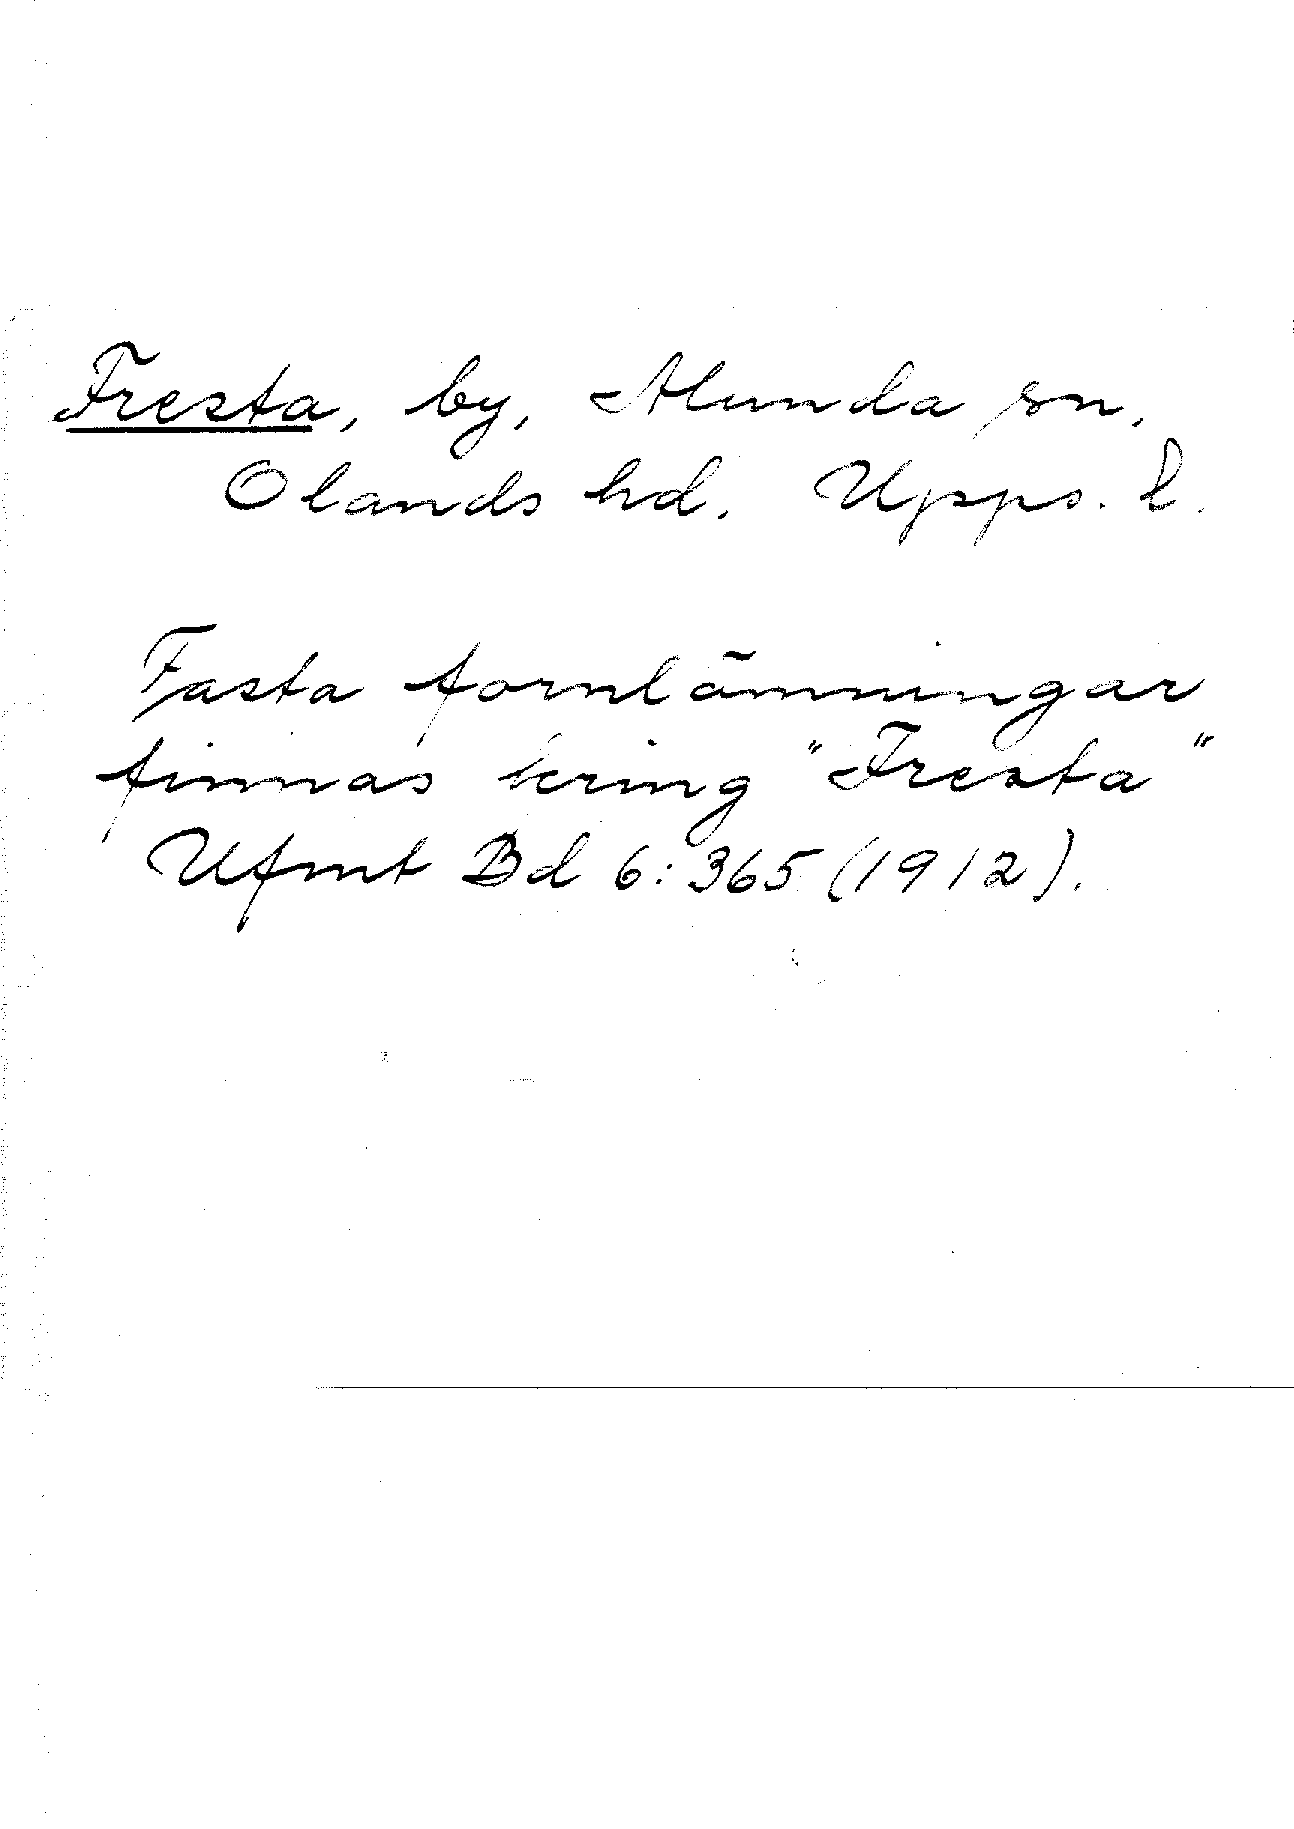 Fresta, by, Alunda sn,
Olands hd. Upps. l.
Fasta fornlämningar
finnas kring "Fresta"
Ufmt Bd 6:365 (1912).